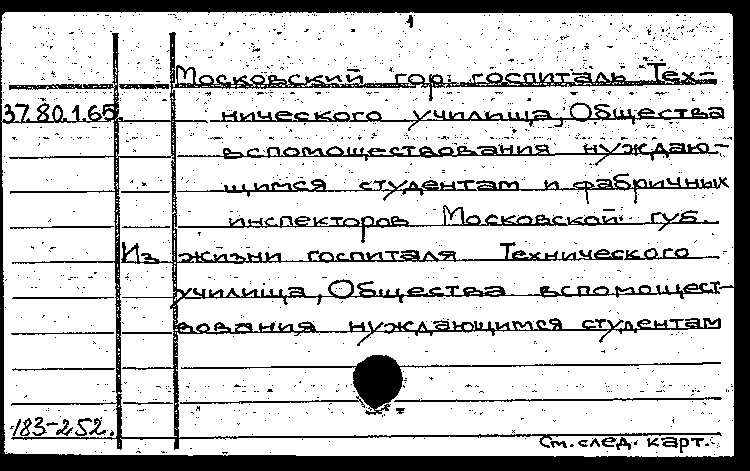 1
Московский гор. госпиталь Тех-
37.80.1.65. нического училища, Общества
вспомоществования нуждаю-
щимся студентам и фабричных
инспекторов Московской губ.
Из жизни госпиталя Технического
училища, Общества вспомощест-
вования нуждающимся студентам
183-252.
См. след. карт.